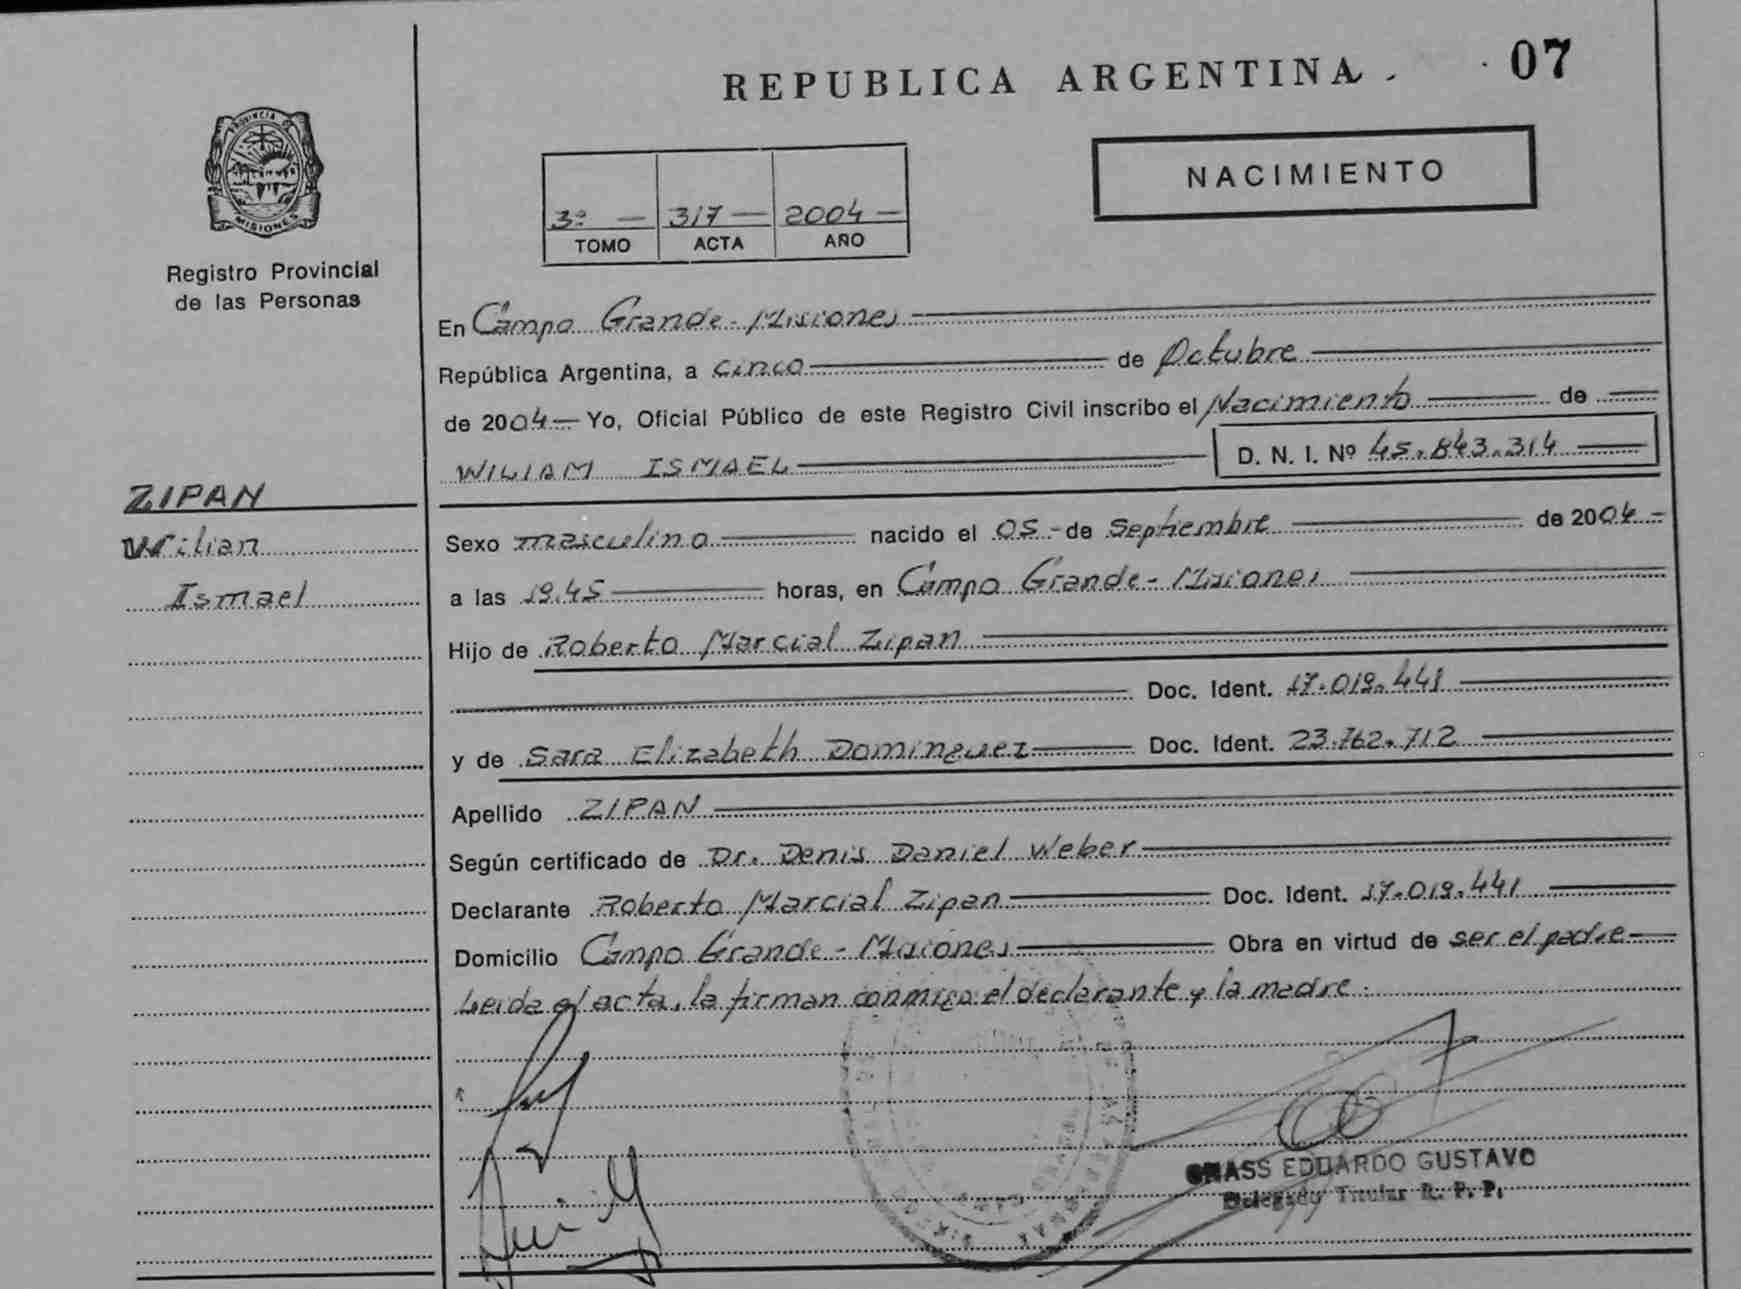 REPUBLICA ARGENTINA. 07
PROVINCIA DE
MISIONES
Registro Provincial
de las Personas
NACIMIENTO
3º — 317 — 2004 —
TOMO ACTA AÑO
En Campo Grande - Misiones
República Argentina, a cinco de Octubre
de 2004 — Yo, Oficial Público de este Registro Civil inscribo el Nacimiento de
WILIAM ISMAEL D. N. I. Nº 45.843.314
ZIPAN
Wilian
Ismael
Sexo masculino nacido el 05 - de Septiembre de 2004 -
a las 19.45 horas, en Campo Grande - Misiones
Hijo de Roberto Marcial Zipan
Doc. Ident. 17.019.441
y de Sara Elizabeth Dominguez Doc. Ident. 23.762.712
Apellido ZIPAN
Según certificado de Dr. Denis Daniel Weber
Declarante Roberto Marcial Zipan Doc. Ident. 17.019.441
Domicilio Campo Grande - Misiones Obra en virtud de ser el padre
Leida el acta, la firman conmigo el declarante y la madre.
EDUARDO GUSTAVO
Delegado Titular R. P. P.